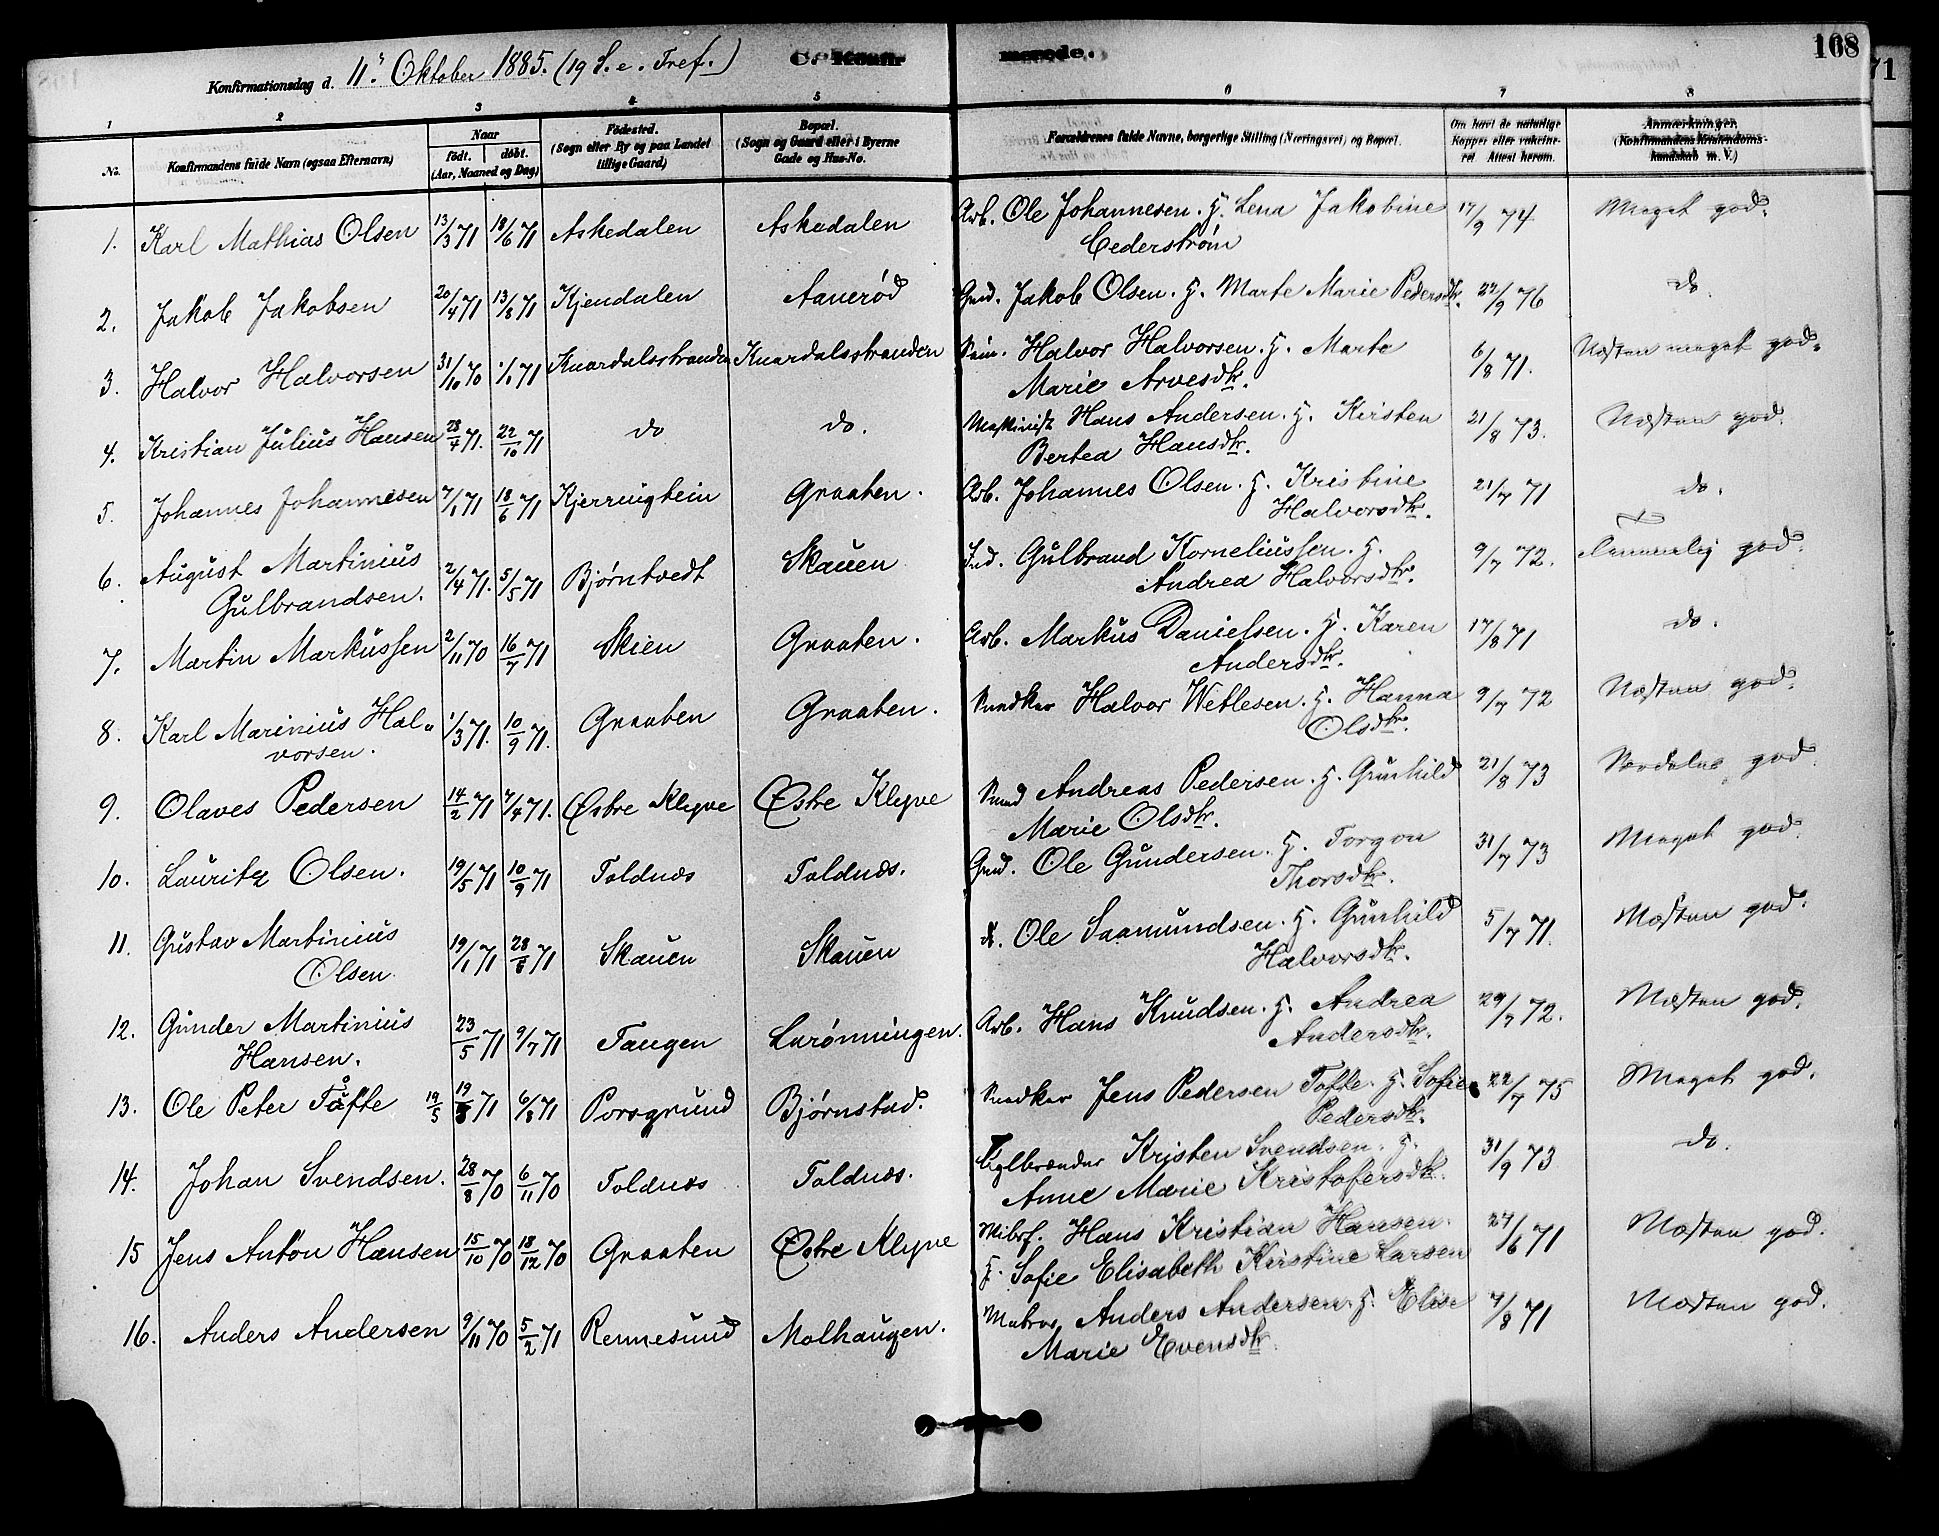 Konfirmationsdag d. 11' Oktober 1885. (19 S. e. Tref.) Konfir merede. 168
71
1 2 3 4 5 6 7 8
No. Konfirmandens fulde Navn (ogsaa Efternavn) Naar født. døbt. (Aar, Maaned og Dag) Fødested. (Sogn eller By og paa Landet tillige Gaard.) Bopæl. (Sogn og Gaard eller i Byerne Gade og Hus-No. Forældrenes fulde Navne, borgerlige Stilling (Næringsvei) og Bopæl. Om havt de naturlige Kopper eller vakcineret. Attest herom. Anmærkninger (Konfirmandens Kristendomskundskab m. V.)
1. Karl Mathias Olsen 13/3 71 18/6 71 Askedalen Askedalen Arb. Ole Johannesen. H. Lena Jakobine 17/9 74 Meget god.
Cederstrøm
2. Jakob Jakobsen 20/4 71 13/8 71 Kjendalen Aanerød Gmd. Jakob Olsen. H. Marte Marie Pedersdtr. 22/9 76 do
3. Halvor Halvorsen 31/10 70 1/1 71 Knardalsstranden Knardalsstranden Halvor Halvorsen. H. Marte 6/8 71. Næsten meget god.
Marie Arvesdtr.
4. Kristian Julius Hansen 23/4 71. 22/10 71 do do. Maskinist Hans Andersen. H. Kirsten 21/8 73. Næsten god.
Bertea Hansdtr.
5. Johannes Johannesen 7/1 71 18/6 71 Kjerringtein Graaten. Arb. Johannes Olsen. H. Kristine 21/7 71 do.
Halvorsdtr.
6. August Martinius 2/4 71. 5/5 71 Bjørntvedt Skauen Ind. Gulbrand Korneliussen. H. 9/7 72. Temmelig god.
Gulbrandsen. Andrea Halvorsdtr.
7. Martin Markussen 2/11 70 16/7 71 Skien Graaten. Arb. Markus Danielsen. H. Karen 17/8 71 do.
Andersdtr.
8. Karl Marinius Hal- 1/3 71. 10/9 71. Graaten Graaten. Snedker Halvor Wetlesen. H. Hanna 9/7 72 Næsten god.
vorsen. Olsdtr.
9. Olaves Pedersen 14/2 71 7/4 71. Østre Klyve Østre Klyve Smed Andreas Pedersen. H. Gunhild 21/8 73 Særdeles god.
Marie Olsdtr.
10. Lauritz Olsen. 19/5 71 10/9 71 Toldnæs Toldnæs. Gmd. Ole Gundersen. H. Torgon 31/7 73 Meget god.
Thorsdtr.
11. Gustav Martinius 19/1 71 28/5 71 Skauen Skauen Ole Saamundsen. H. Gunhild 5/7 71. Næsten god.
Olsen. Halvorsdtr.
12. Gunder Martinius 23/5 71 9/7 71 Tangen Lurønningen. Arb. Hans Knudsen. H. Andrea 29/7 72. Næsten god.
Hansen. Andersdtr.
13. Ole Peter Tåfte 19/5 19/5 71 6/8 71 Porsgrund Bjørnstad. Snedker Jens Pedersen Tofte. H. Sofie 22/7 75 Meget god.
Pedersdtr.
14. Johan Svendsen. 28/8 70 6/11 70 Toldnæs Toldnæs. Teglbrænder Kristen Svendsen. H. 31/9 73 do.
Anne Marie Kristofersdtr.
15 Jens Anton Hansen 15/10 70 18/12 70 Graaten Østre Klyve Hans Kristian Hansen. 27/6 71 Næsten god.
H. Sofie Elisabeth Kirstine Larsen
16. Anders Andersen 9/11 70 5/2 71 Rennesund Molhaugen. Matros Anders Andersen. H. Elise 7/8 71 Næsten god.
Marie Evensdtr.